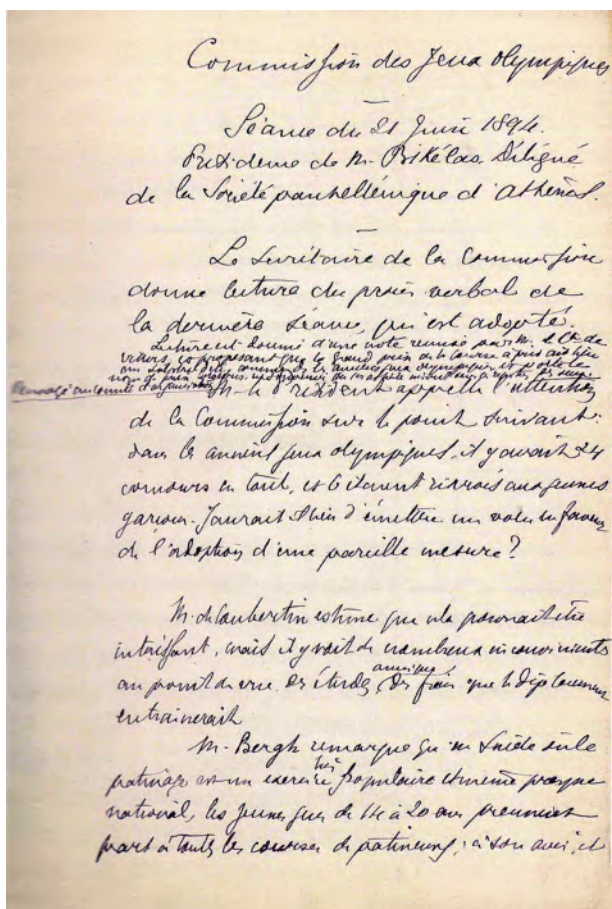 Commission des Jeux Olympiques
Séance du 21 Juin 1894.
Présidence de M. Bikélas. Délégué
de la Société panhellénique d'Athènes.
Le Secrétaire de la Commission
donne lecture du procès verbal de
la dernière séance, qui est adopté.
Lecture est donné d'une note remise par M. le Cte de
proposant que le grand prix de la course à pied ait lieu
M. le Président appelle l'attention
de la Commission sur le point suivant:
dans les anciens jeux olympiques, il y avait 24
concours en tout, et 6 étaient réservés aux jeunes
garçons. Y aurait-il lieu d'émettre un vœu en faveur
de l'adoption d'une pareille mesure?
M. de Coubertin estime que cela pourrait être
intéressant, mais il y voit de nombreux inconvénients
au point de vue des études, des frais que le déplacement
entrainerait
M. Bergh remarque qu'en Suède où le
patinage est un exercice très populaire et même presque
national, les jeunes gens de 14 à 20 ans prennent
part à toutes les courses de patineurs; à son avis, il